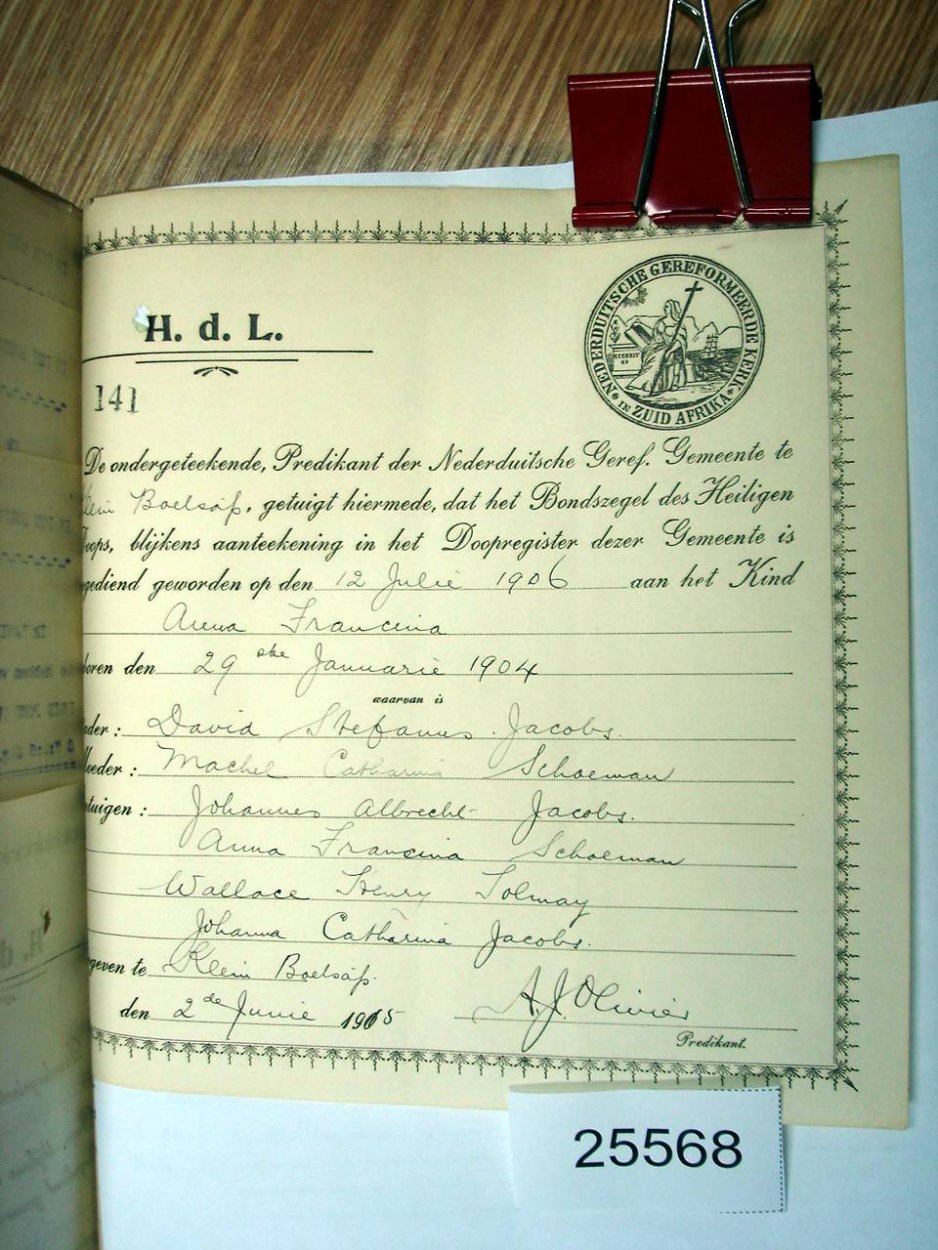 H. d. L.
NEDERDUITSCHE GEREFORMEERDE KERK
IN ZUID AFRIKA
141
De ondergeteekende, Predikant der Nederduitsche Geref. Gemeente te
lein Boetsap, getuigt hiermede, dat het Bondszegel des Heiligen
Doops, blijkens aanteekening in het Doopregister dezer Gemeente is
gediend geworden op den 12 Julie 1906 aan het Kind
Anna Francina
boren den 29ste Januarie 1904
waarvan is
ader: David Stefanus Jacobs.
oeder: Machel Catharina Schoeman
tuigen: Johannes Albrecht Jacobs.
Anna Francina Schoeman
Wallace Henry Tolmay
Johanna Catharina Jacobs.
geven te Klein Boetsap.
den 2de Junie 1965
A. J. Olivier
Predikant.
25568